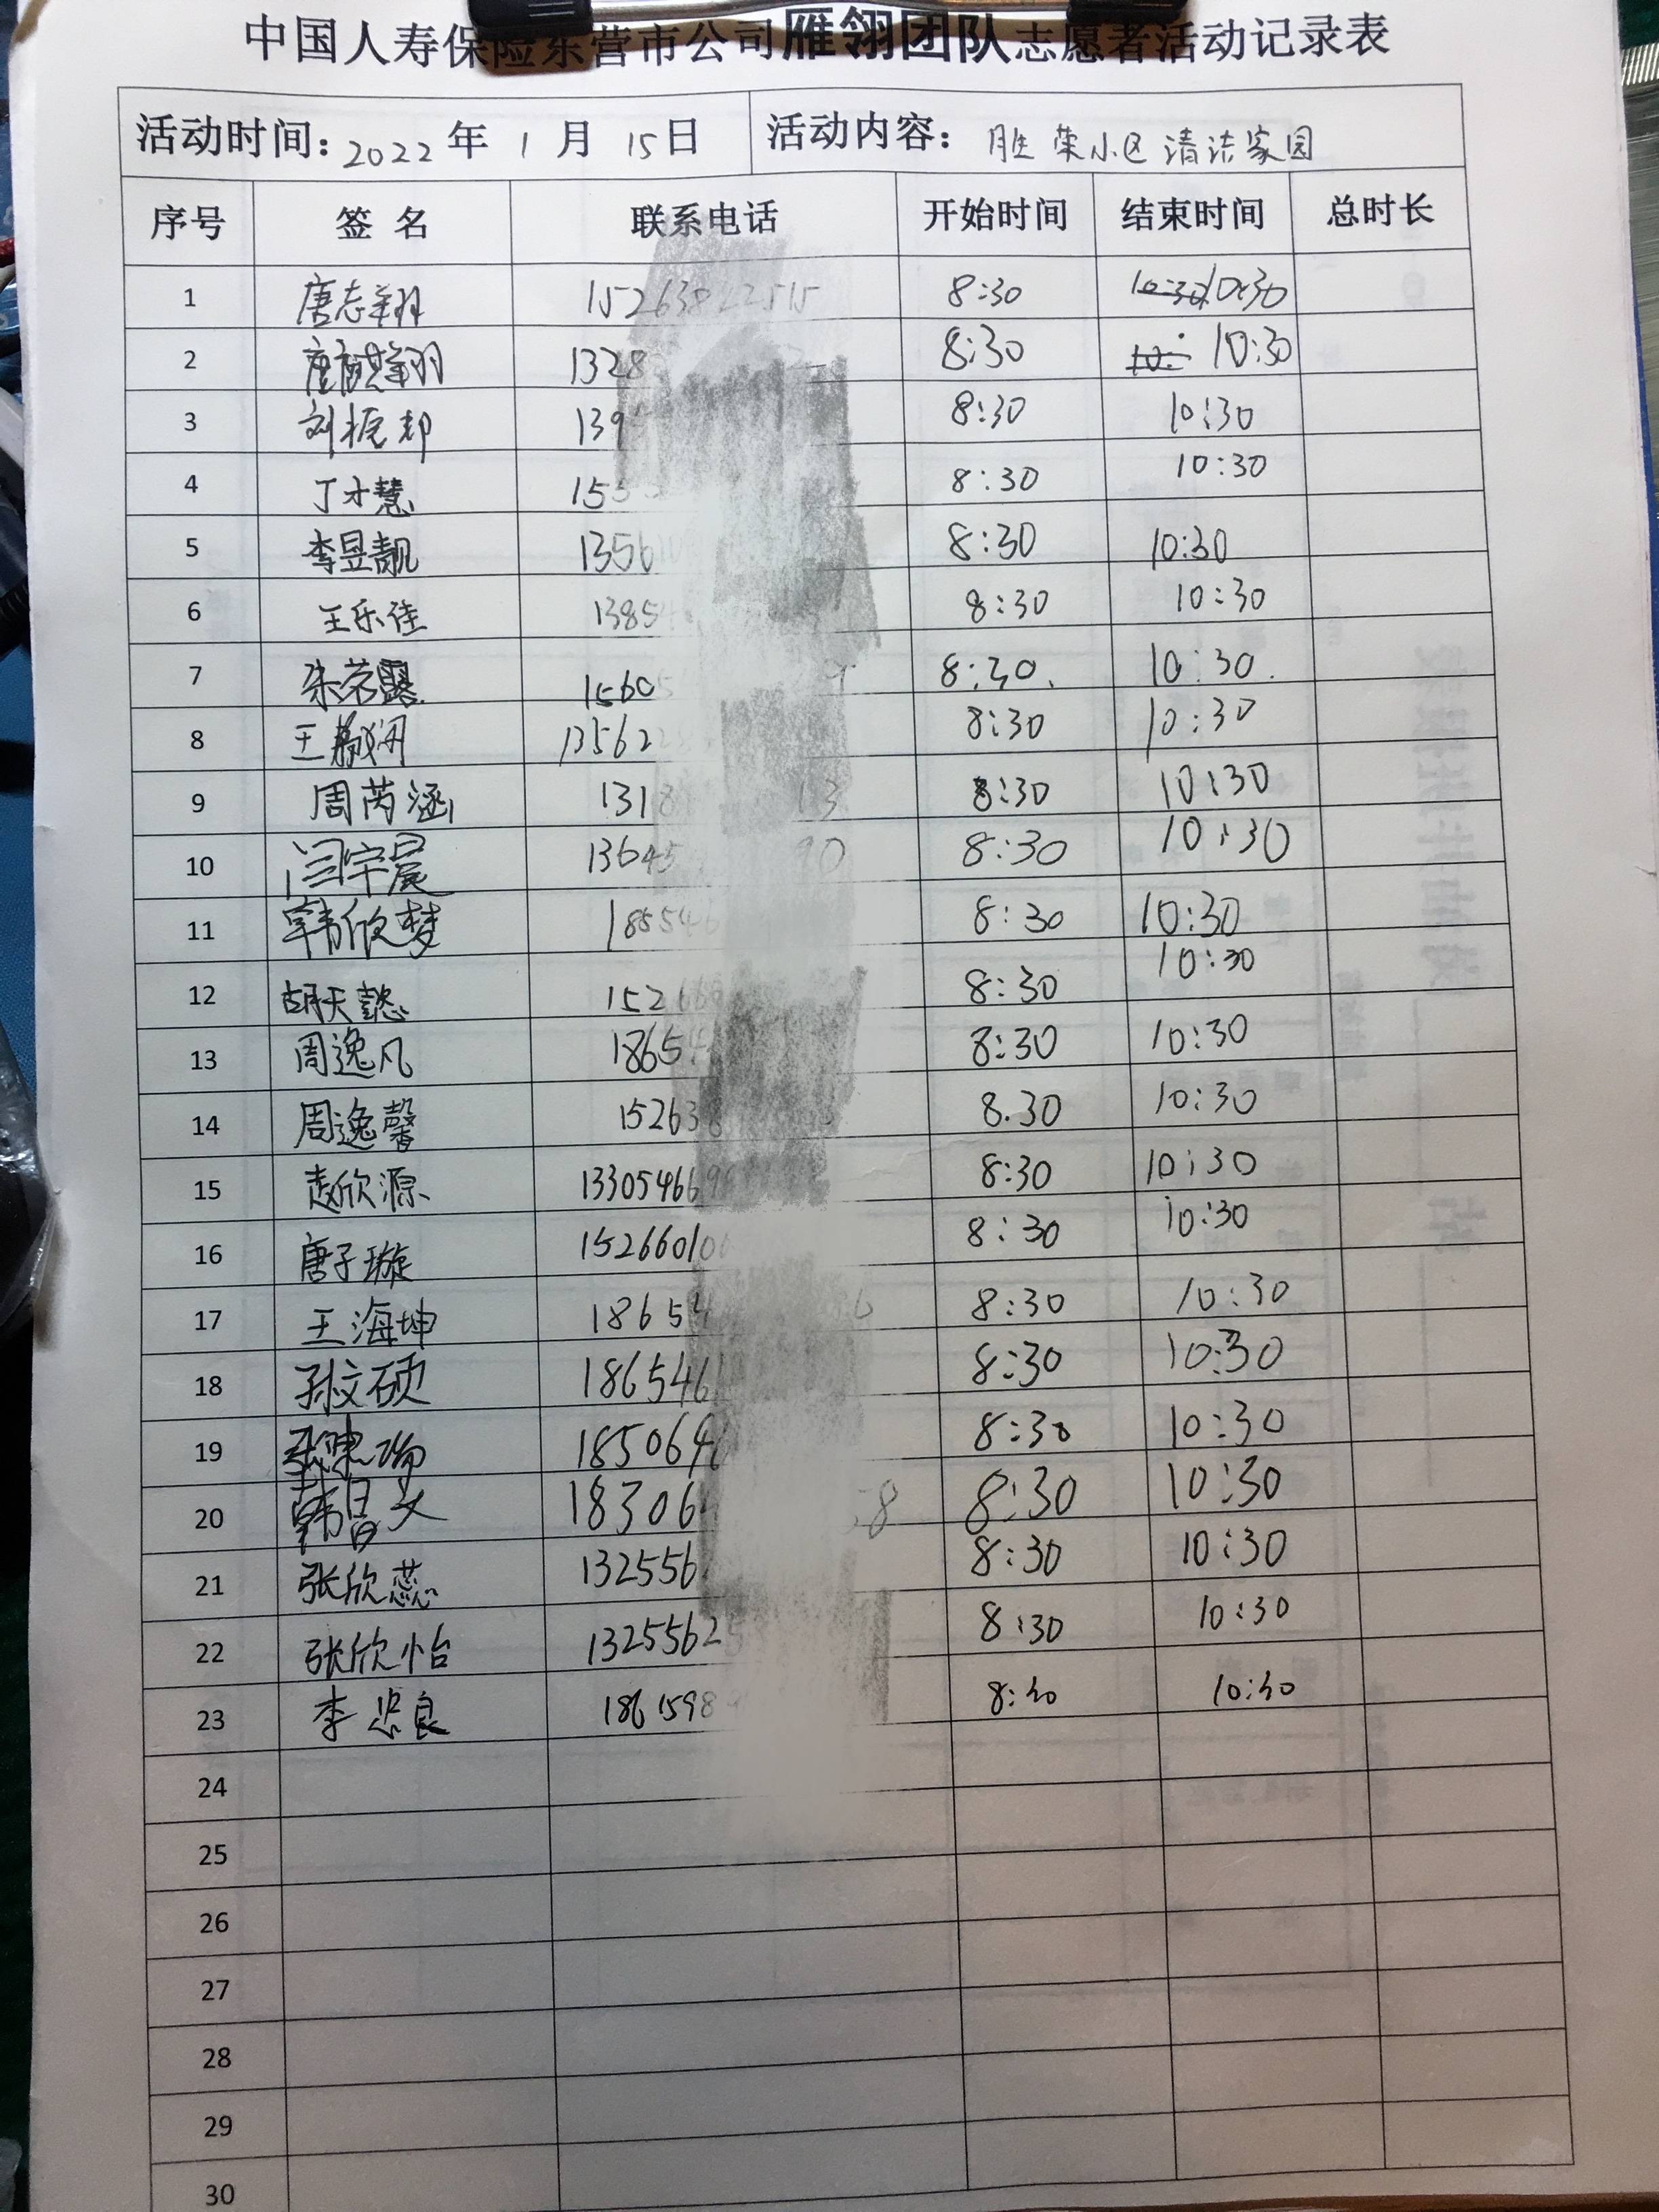 中国人寿保险东营市公司雁翎团队志愿者活动记录表
活动时间: 2022 年 1 月 15 日 活动内容: 胜荣小区清洁家园
序号 签 名 联系电话 开始时间 结束时间 总时长
1 唐志翔 8:30 10:30 10:30
2 唐麒翔 1328 8:30 10: 10:30
3 刘振邦 139 8:30 10:30
4 丁才慧 155 8:30 10:30
5 李昱靓 1356 8:30 10:30
6 王乐佳 1385 8:30 10:30
7 朱茗露 1560 8:30. 10:30.
8 王 13562 8:30 10:30
9 周芮涵 1318 13 8:30 10:30
10 闫宇晨 13645 90 8:30 10:30
11 韩欣梦 18554 8:30 10:30
12 胡天懿 152 8:30 10:30
13 周逸凡 1865 8:30 10:30
14 周逸馨 15263 8.30 10:30
15 赵欣源 13305466 8:30 10:30
16 唐子璇 15266010 8:30 10:30
17 王海坤 18654 6 8:30 10:30
18 孙文硕 186546 8:30 10:30
19 185064 8:30 10:30
20 韩昌文 18306 58 8:30 10:30
21 张欣蕊 132556 8:30 10:30
22 张欣怡 13255625 8:30 10:30
23 李忠良 1861598 8:30 10:30
24
25
26
27
28
29
30